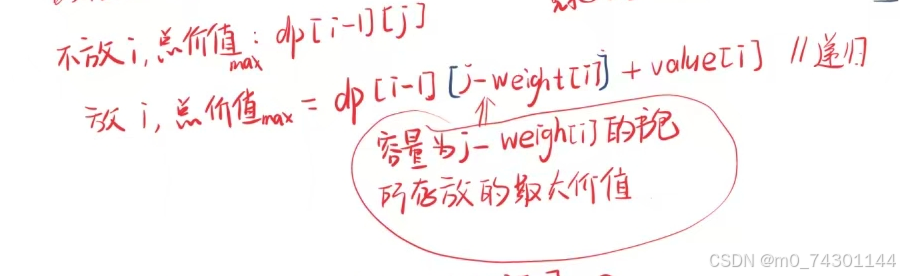 不放i,总价值max: dp[i-1][j]
放i,总价值max = dp[i-1][j-weight[i]] + value[i] //递归
容量为j- weigh[i]的书包
所存放的最大价值
CSDN @m0_74301144